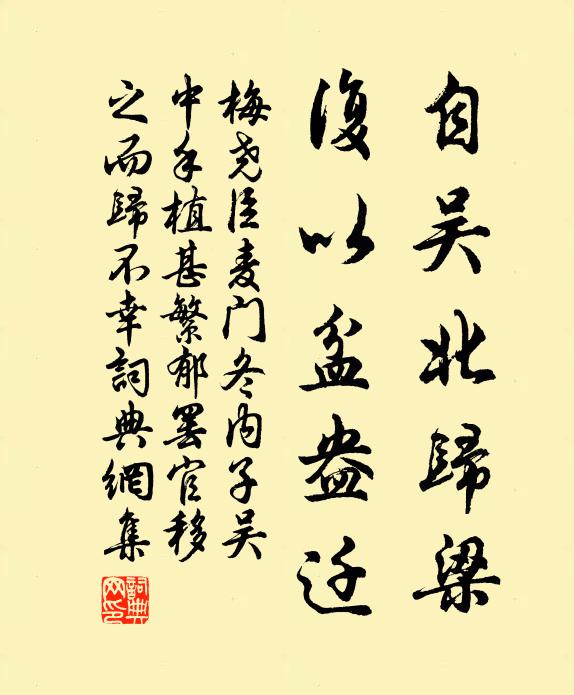 自吴北歸梁
復以盆盎迁
梅尧臣麦门冬内子吴
中手植甚繁郁罢官移
之而歸不幸詞典網集
詞典網印